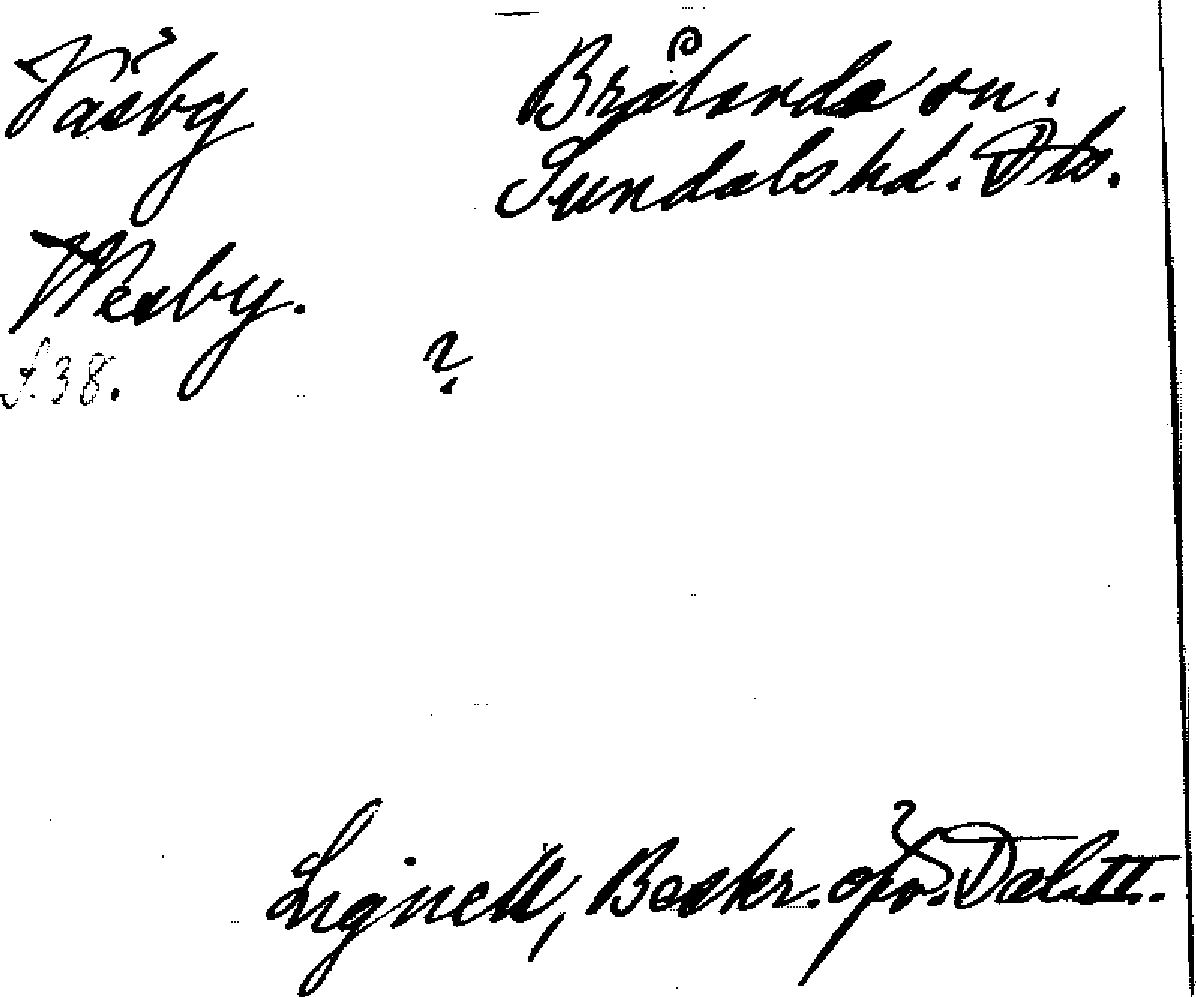 Väsby Brålanda sn.
Sundals hd. Dls.
Wesby.
S. 38. ?
Lignell, Beskr. öfv. Dal. II.